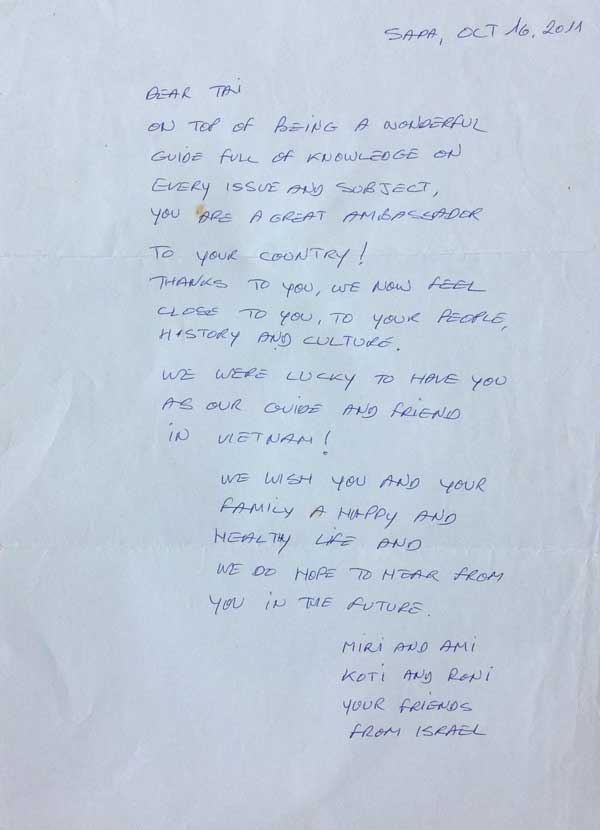 SAPA, OCT 16, 2011
DEAR TAI
ON TOP OF BEING A WONDERFUL
GUIDE FULL OF KNOWLEDGE ON
EVERY ISSUE AND SUBJECT,
YOU ARE A GREAT AMBASSADOR
TO YOUR COUNTRY!
THANKS TO YOU, WE NOW FEEL
CLOSE TO YOU, TO YOUR PEOPLE,
HISTORY AND CULTURE.
WE WERE LUCKY TO HAVE YOU
AS OUR GUIDE AND FRIEND
IN VIETNAM!
WE WISH YOU AND YOUR
FAMILY A HAPPY AND
HEALTHY LIFE AND
WE DO HOPE TO HEAR FROM
YOU IN THE FUTURE.
MIRI AND AMI
KOTI AND RONI
YOUR FRIENDS
FROM ISRAEL